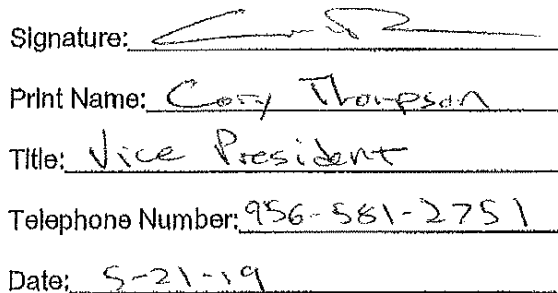 Signature:
Print Name: Cory Thompson
Title: Vice President
Telephone Number: 956-581-2751
Date: 5-21-19